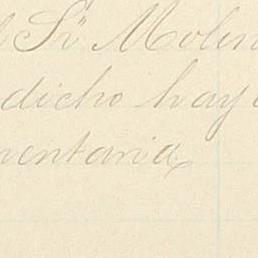 l Sr. Molin
dicho hay
mentaria